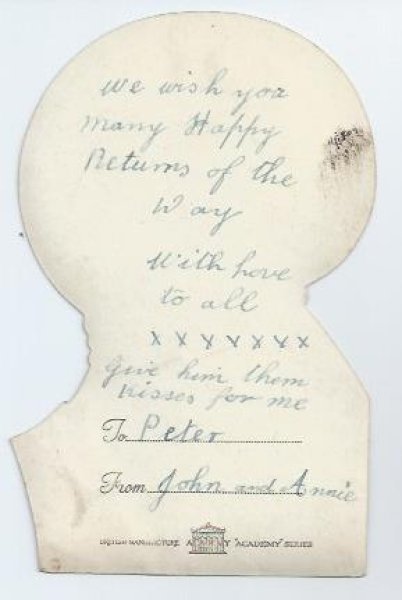 We wish you
Many Happy
Returns of the
Day
With love
to all
x x x x x x x
Give him them
kisses for me
To Peter
From John and Annie
BRITISH MANUFACTURE ACADEMY "ACADEMY" SERIES